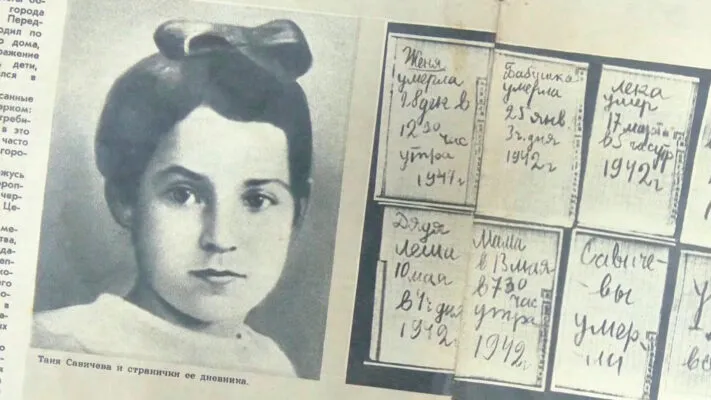 города
Перед-
одил по
о дома,
ражение
е дети,
лся в
санные
ерком:
треби-
в это
часто
горо-
жусь
ероп-
чер-
Це-
ме-
тва,
да-
еп-
ко-
ого
Таня Савичева и странички ее дневника.
Женя
умерла
28 дек в
12 30 час
утра
1941 г
Бабушка
умерла
25 янв.
3 ч. дня
1942 г
Лека
умер
17 марта
в 5 час утр
1942 г
Дядя
Леша
10 мая
в 4 ч дня
1942 г
Мама
в 13 мая
в 7 30
час
утра
1942 г
Савиче-
вы
умер-
ли